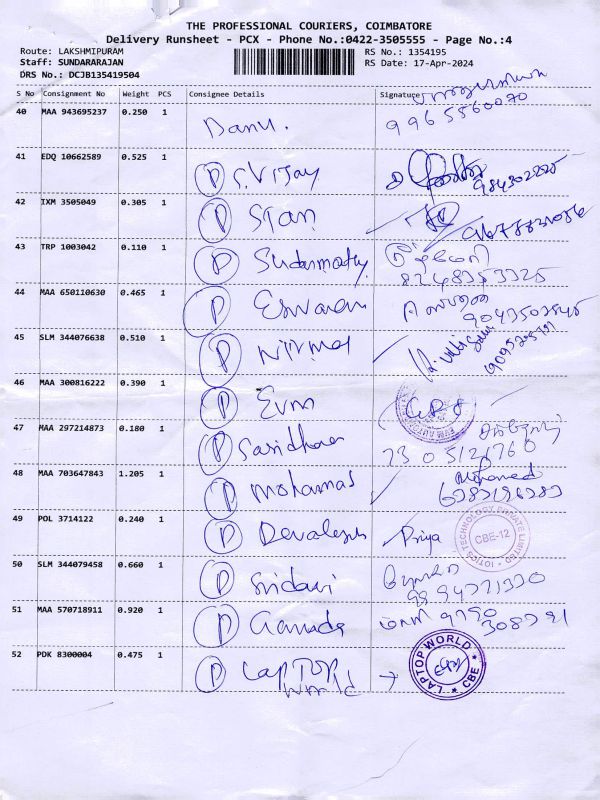 THE PROFESSIONAL COURIERS, COIMBATORE
Delivery Runsheet - PCX - Phone No.:0422-3505555 - Page No.:4
Route: LAKSHMIPURAM RS No.: 1354195
Staff: SUNDARARAJAN RS Date: 17-Apr-2024
DRS No.: DCJB135419504
S No Consignment No Weight PCS Consignee Details Signature
40 MAA 943695237 0.250 1 Banu.
9965860070
41 EDQ 10662589 0.525 1 P S.Vijay
42 IXM 3505049 0.305 1 P Stan
43 TRP 1003042 0.110 1 P
8248353325
44 MAA 650110630 0.465 1 P Eswaran
9043502845
45 SLM 344076638 0.510 1 P Nirmal
46 MAA 300816222 0.390 1 P Evm
47 MAA 297214873 0.180 1 P
48 MAA 703647843 1.205 1 P Mohamas Mohamed
49 POL 3714122 0.240 1 P Priya
IOTICS TECHNOLOGY PRIVATE LIMITED
CBE-12
50 SLM 344079458 0.660 1 P Sridavi
51 MAA 570718911 0.920 1 P
52 PDK 8300004 0.475 1 P LAPTOP World
LAPTOP WORLD
CBE